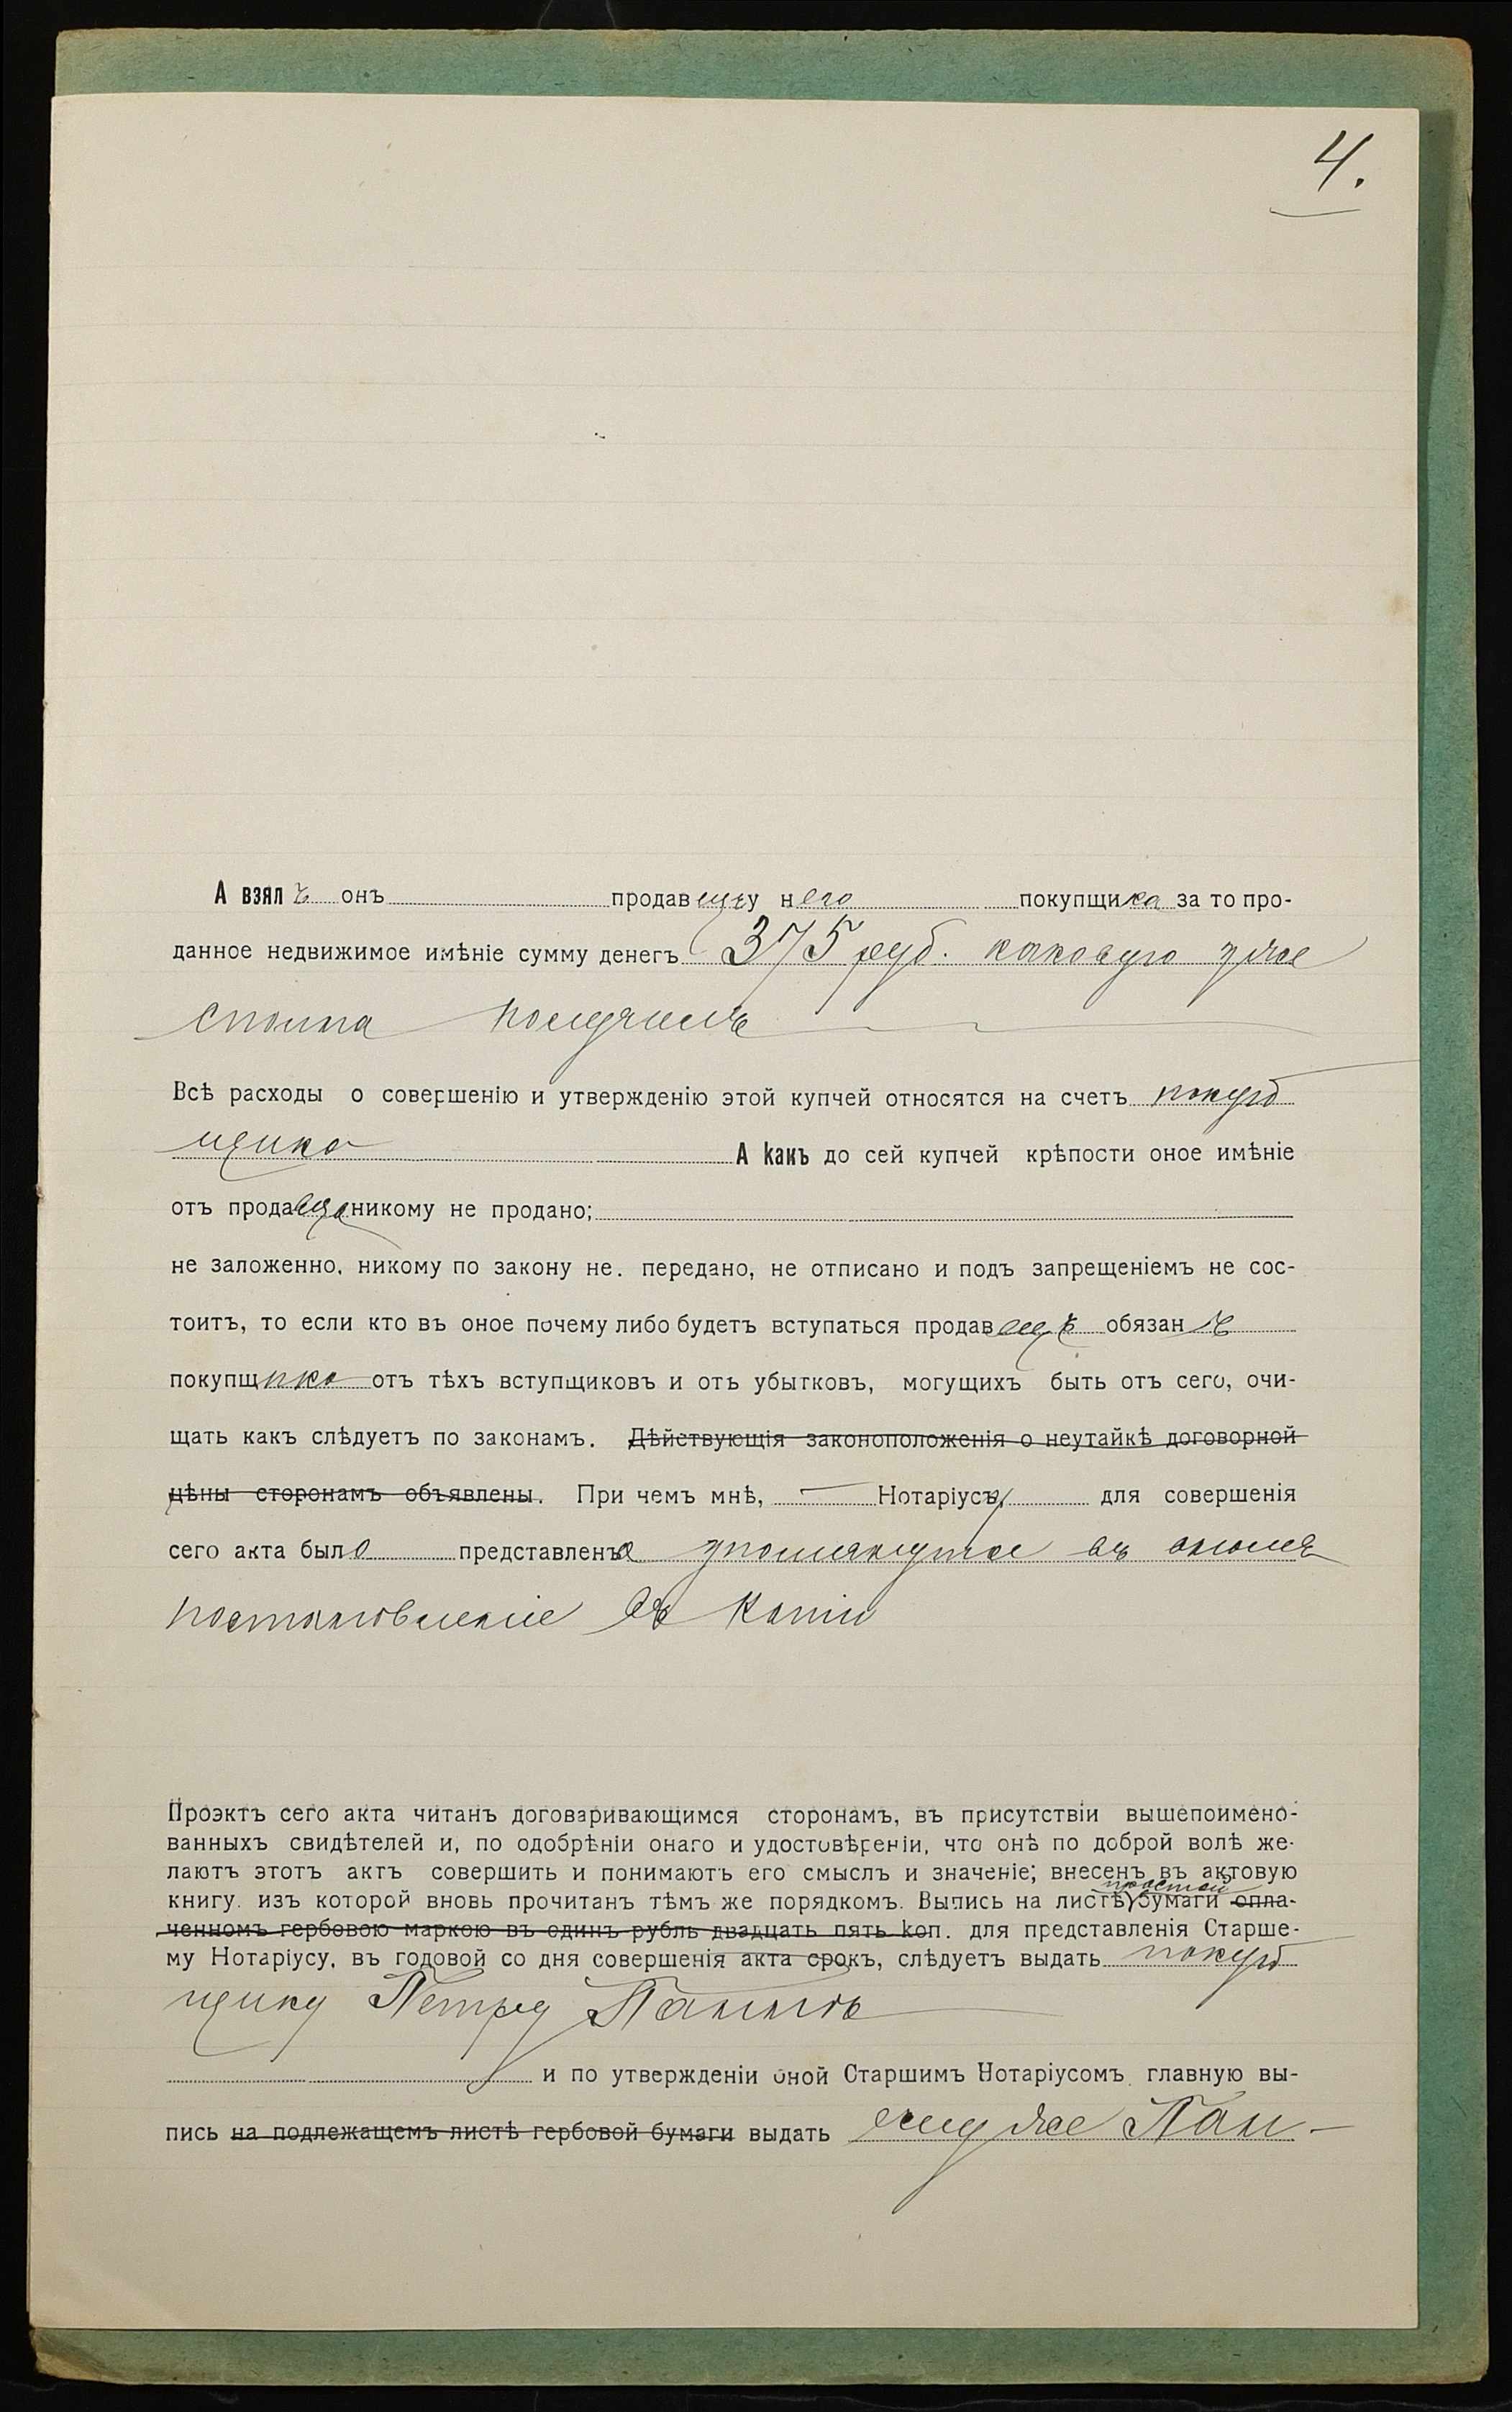 4.
А взялъ онъ продавецъ у него покупщика за то про-
данное недвижимое имѣніе сумму денегъ 375 руб. каковую уже
сполна получилъ
Всѣ расходы о совершенію и утвержденію этой купчей относятся на счетъ покуп
щика А какъ до сей купчей крѣпости оное имѣніе
отъ продавца никому не продано;
не заложенно, никому по закону не. передано, не отписано и подъ запрещеніемъ не сос-
тоитъ, то если кто въ оное почему либо будетъ вступаться продавецъ обязанъ
покупщика отъ тѣхъ вступщиковъ и отъ убытковъ, могущихъ быть отъ сего, очи-
щать какъ слѣдуетъ по законамъ. Дѣйствующія законоположенія о неутайкѣ договорной
цѣны сторонамъ объявлены. При чемъ мнѣ, Нотаріусу, для совершенія
сего акта было представлено упомянутое въ
постановленіе въ копіи
Проэктъ сего акта читанъ договаривающимся сторонамъ, въ присутствіи вышепоимено-
ванныхъ свидѣтелей и, по одобрѣніи онаго и удостовѣреніи, что онѣ по доброй волѣ же-
лаютъ этотъ актъ совершить и понимаютъ его смыслъ и значеніе; внесенъ въ актовую
простой
книгу. изъ которой вновь прочитанъ тѣмъ же порядкомъ. Выпись на листѣ бумаги опла-
ченномъ гербовою маркою въ одинъ рубль двадцать пять коп. для представленія Старше-
му Нотаріусу, въ годовой со дня совершенія акта срокъ, слѣдуетъ выдать покуп
щику Петру
и по утвержденіи оной Старшимъ Нотаріусомъ главную вы-
пись на подлежащемъ листѣ гербовой бумаги выдать ему же Пан-